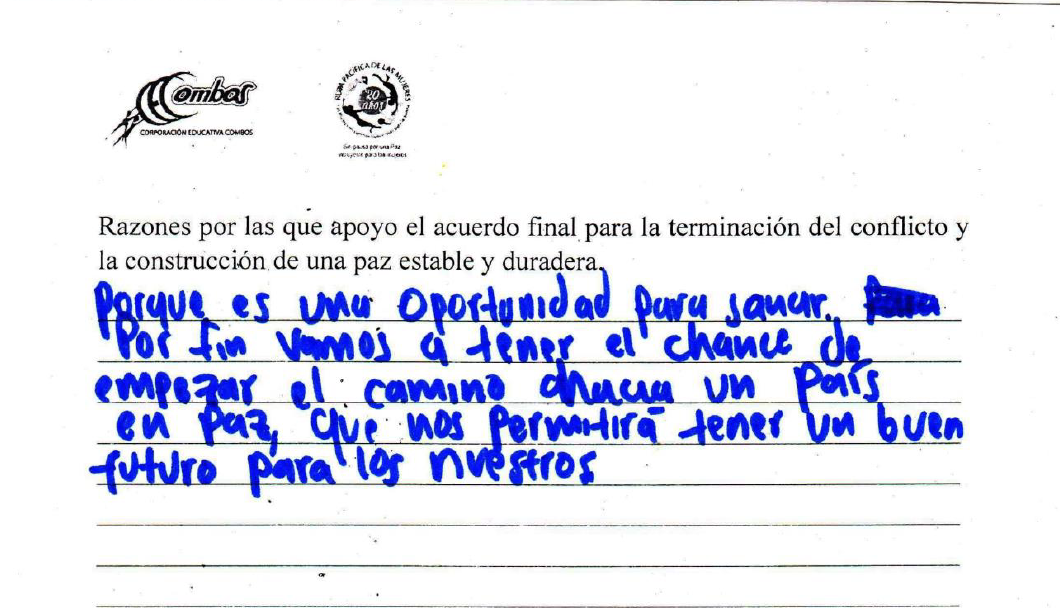 Combos
CORPORACIÓN EDUCATIVA COMBOS
RUTA PACÍFICA DE LAS MUJERES
20
años
Razones por las que apoyo el acuerdo final para la terminación del conflicto y
la construcción de una paz estable y duradera.
Porque es una oportunidad para sanar.
Por fin vamos a tener el chance de
empezar el camino hacia un país
en paz, que nos permitirá tener un buen
futuro para los nuestros